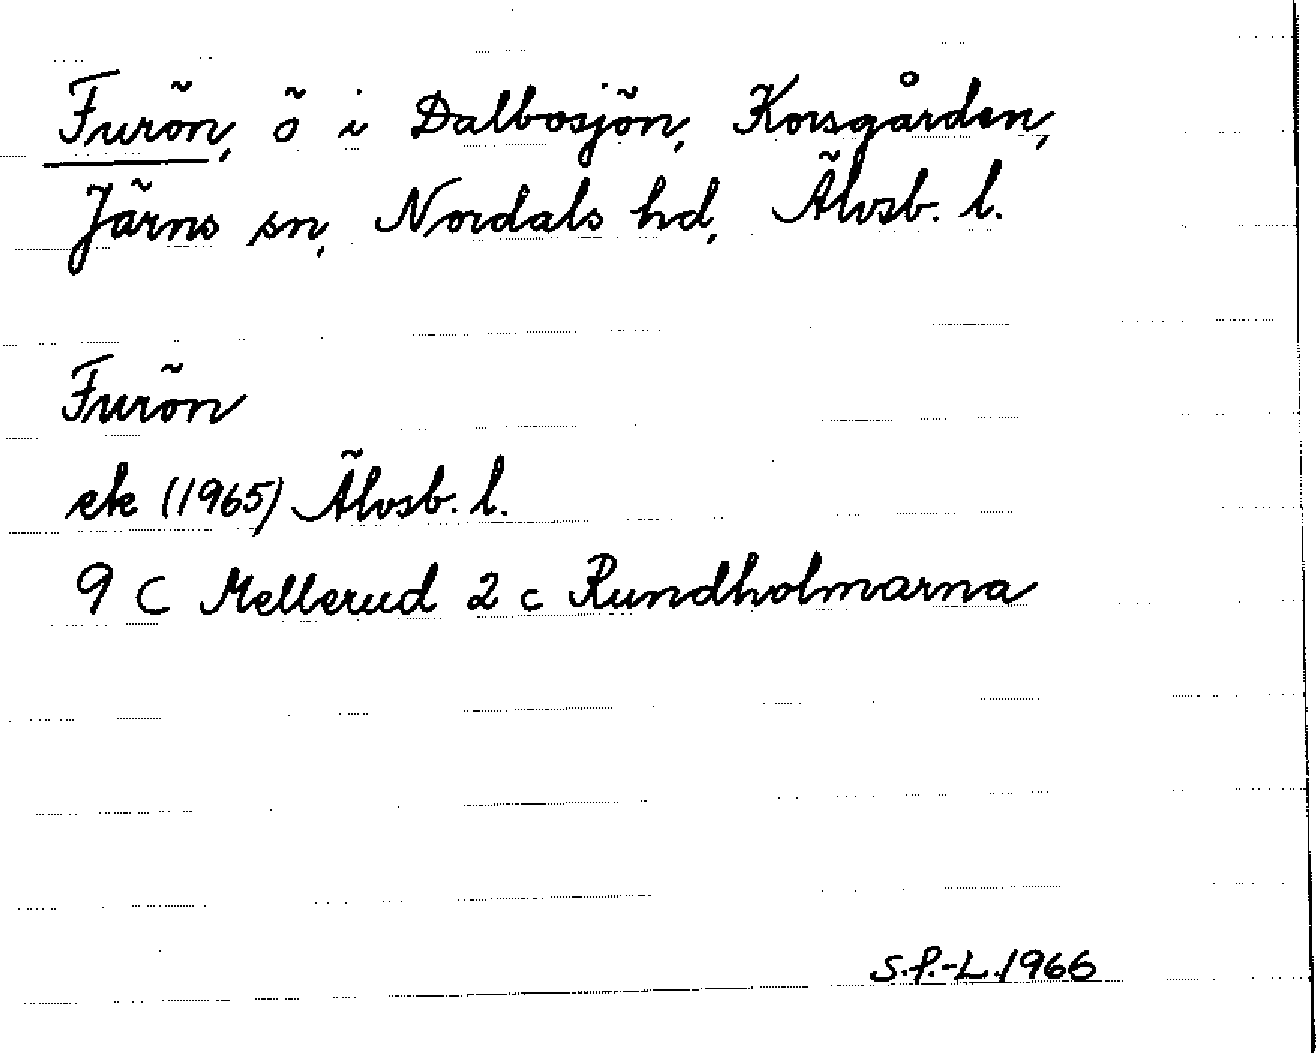 Furön, ö i Dalbosjön, Korsgården,
Järns sn, Nordals hd, Älvsb. l.
Furön
ek (1965) Älvsb. l.
9 C Mellerud 2 c Rundholmarna
S.P.-L. 1966